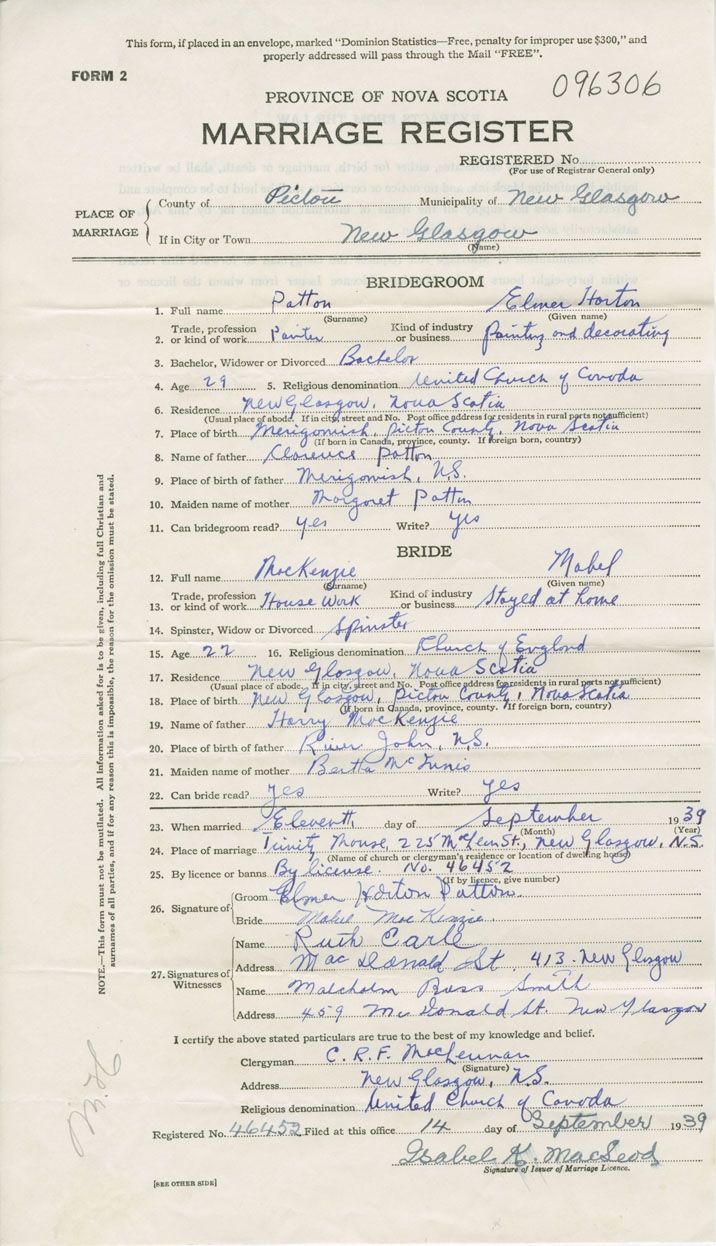 This form, if placed in an envelope, marked "Dominion Statistics—Free, penalty for improper use $300," and
properly addressed will pass through the Mail "FREE".
FORM 2
096306
PROVINCE OF NOVA SCOTIA
MARRIAGE REGISTER
REGISTERED No.
(For use of Registrar General only)
PLACE OF MARRIAGE
County of Pictou Municipality of New Glasgow
If in City or Town New Glasgow
(Name)
BRIDEGROOM
1. Full name Patton Elmer Horton
(Surname) (Given name)
2. Trade, profession or kind of work Painter Kind of industry or business Painting and decorating
3. Bachelor, Widower or Divorced Bachelor
4. Age 29 5. Religious denomination United Church of Canada
6. Residence New Glasgow, Nova Scotia
(Usual place of abode. If in city, street and No. Post office address for residents in rural parts not sufficient)
7. Place of birth Merigomish, Pictou County, Nova Scotia
(If born in Canada, province, county. If foreign born, country)
8. Name of father Clarence Patton
9. Place of birth of father Merigomish, N.S.
10. Maiden name of mother Margaret Patton
11. Can bridegroom read? yes Write? yes
BRIDE
12. Full name MacKenzie Mabel
(Surname) (Given name)
13. Trade, profession or kind of work House Work Kind of industry or business Stayed at home
14. Spinster, Widow or Divorced Spinster
15. Age 22 16. Religious denomination Church of England
17. Residence New Glasgow, Nova Scotia
(Usual place of abode. If in city, street and No. Post office address for residents in rural parts not sufficient)
18. Place of birth New Glasgow, Pictou County, Nova Scotia
(If born in Canada, province, county. If foreign born, country)
19. Name of father Harry MacKenzie
20. Place of birth of father River John, N.S.
21. Maiden name of mother Bertha McInnis
22. Can bride read? yes Write? yes
23. When married Eleventh day of September 1939
(Month) (Year)
24. Place of marriage Trinity Manse, 225 St., New Glasgow, N.S.
(Name of church or clergyman's residence or location of dwelling house)
25. By licence or banns By license. No. 46452
(If by licence, give number)
26. Signature of
Groom Elmer Horton Patton
Bride Mabel MacKenzie
27. Signatures of Witnesses
Name Ruth
Address MacDonald St. 413. New Glasgow
Name Malcholm Ross Smith
Address 459 McDonald St. New Glasgow
I certify the above stated particulars are true to the best of my knowledge and belief.
Clergyman C. R. F. MacLennan
(Signature)
Address New Glasgow, N.S.
Religious denomination United Church of Canada
Registered No. 46452 Filed at this office 14 day of September 1939
Isabel K. MacLeod
Signature of Issuer of Marriage Licence.
[SEE OTHER SIDE]
NOTE.—This form must not be mutilated. All information asked for is to be given, including full Christian and
surnames of all parties, and if for any reason this is impossible, the reason for the omission must be stated.